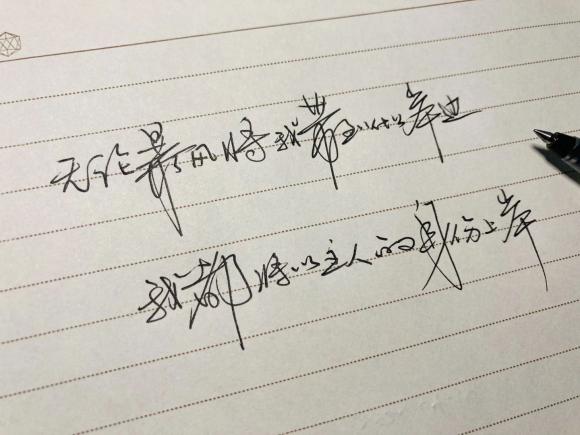 无论暴风将我带到什么岸边
我都将以主人的身份上岸